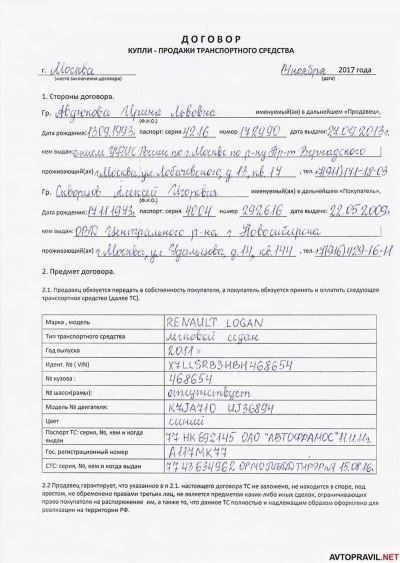 ДОГОВОР
КУПЛИ - ПРОДАЖИ ТРАНСПОРТНОГО СРЕДСТВА
г. Москва 14 ноября 2017 года
(место заключения договора) (дата)
1. Стороны договора.
Гр. Авдюкова Ирина Львовна именуемый(ая) в дальнейшем «Продавец»,
(Ф.И.О.)
Дата рождения: 13.09.1993. паспорт: серия 4216 номер 172990 дата выдачи: 27.09.2013г.
кем выдан: ОУФМС России по г. Москве по р-ну Пр-т Вернадского
проживающий(ая) г. Москва, ул. Лобачевского, д. 13, кв. 17 , тел. +7(911)171-18-03
Гр. Скворцов Алексей Игоревич именуемый(ая) в дальнейшем «Покупатель»,
(Ф.И.О.)
Дата рождения: 17.11.1973. паспорт: серия 4004 номер 292616 дата выдачи: 22.05.2009.
кем выдан: ОВД Центрального р-на г. Новосибирска
проживающий(ая) г. Москва, ул. Удальцова д. 14, кв. 144 , тел. +7(916)429-16-11
2. Предмет договора.
2.1. Продавец обязуется передать в собственность покупателя, а покупатель обязуется принять и оплатить следующее
транспортное средство (далее ТС).
Марка , модель RENAULT LOGAN
Тип транспортного средства легковой седан
Год выпуска 2011г
Идент. № ( VIN) X7LLSRB3HBH468654
№ кузова : 468654
№ шасси(рамы): отсутствует
Модель № двигателя: K7JA710 UJ36894
Цвет синий
Паспорт ТС: серия, №, кем и когда 77 НК 692145 ОАО "АВТОФРАМОС" 11.11.11г
выдан
Гос. регистрационный номер А117МК77
СТС: серия, №, кем и когда выдан 77 43 634962 15.08.16.
2.2 Продавец гарантирует, что указанное в п 2.1. настоящего договора ТС не заложено, не находится в споре, под
арестом, не обременено правами третьих лиц, не является предметом каких-либо иных сделок, ограничивающих
право покупателя на распоряжение им, а также то, что данное ТС полностью и надлежащим образом оформлено для
реализации на территории РФ.
AVTOPRAVIL.NET